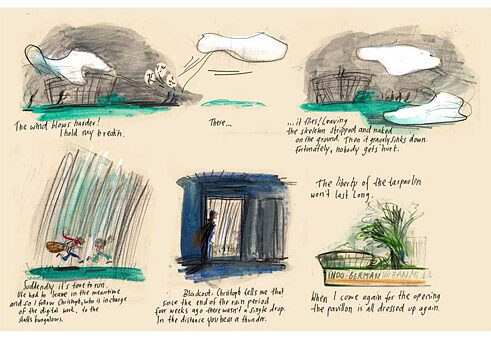 The wind blows harder!
I hold my breath.
There...
...it flies! Leaving
the skeleton stripped and naked
on the ground. Then it gravely sinks down.
Fortunately, nobody gets hurt.
Suddenly it's time to run.
We had to leave in the meantime
and so I follow Christoph, who is in charge
of the digital work, to the
stalls bungalows.
Blackout. Christoph tells me that
since the end of the rain period
four weeks ago there wasn't a single drop.
In the distance you hear a thunder.
The liberty of the tarpaulin
won't last long.
INDO-GERMAN URBAN
When I come again for the opening
the pavilion is all dressed up again.